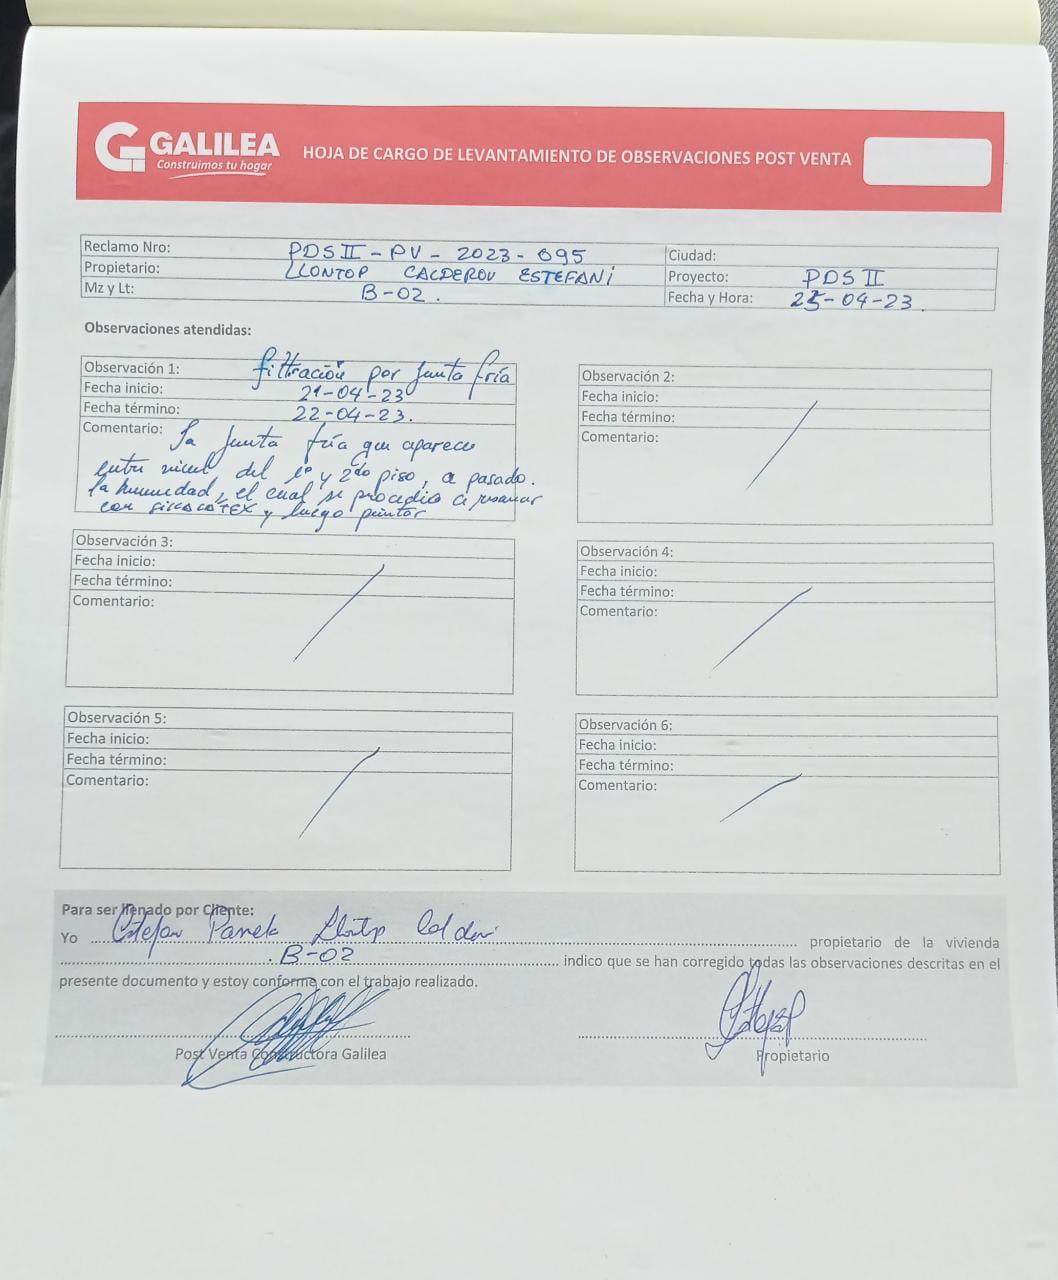 GALILEA
Construimos tu hogar
HOJA DE CARGO DE LEVANTAMIENTO DE OBSERVACIONES POST VENTA
Reclamo Nro: PDS II - PV - 2023 - 095
Ciudad:
Propietario: LLONTOP CALDERON ESTEFANí
Proyecto: PDS II
Mz y Lt: B-02.
Fecha y Hora: 25-04-23.
Observaciones atendidas:
Observación 1: filtración por Junta fría
Fecha inicio: 21-04-23
Fecha término: 22-04-23.
Comentario: La Junta fría que aparece
entre nivel del 1º y 2do piso, a pasado.
la humedad, el cual se procedio a resanar
con y luego pintar
Observación 2:
Fecha inicio:
Fecha término:
Comentario:
Observación 3:
Fecha inicio:
Fecha término:
Comentario:
Observación 4:
Fecha inicio:
Fecha término:
Comentario:
Observación 5:
Fecha inicio:
Fecha término:
Comentario:
Observación 6:
Fecha inicio:
Fecha término:
Comentario:
Para ser llenado por Cliente:
Yo propietario de la vivienda
B-02 indico que se han corregido todas las observaciones descritas en el
presente documento y estoy conforme con el trabajo realizado.
Post Venta Constructora Galilea
Propietario